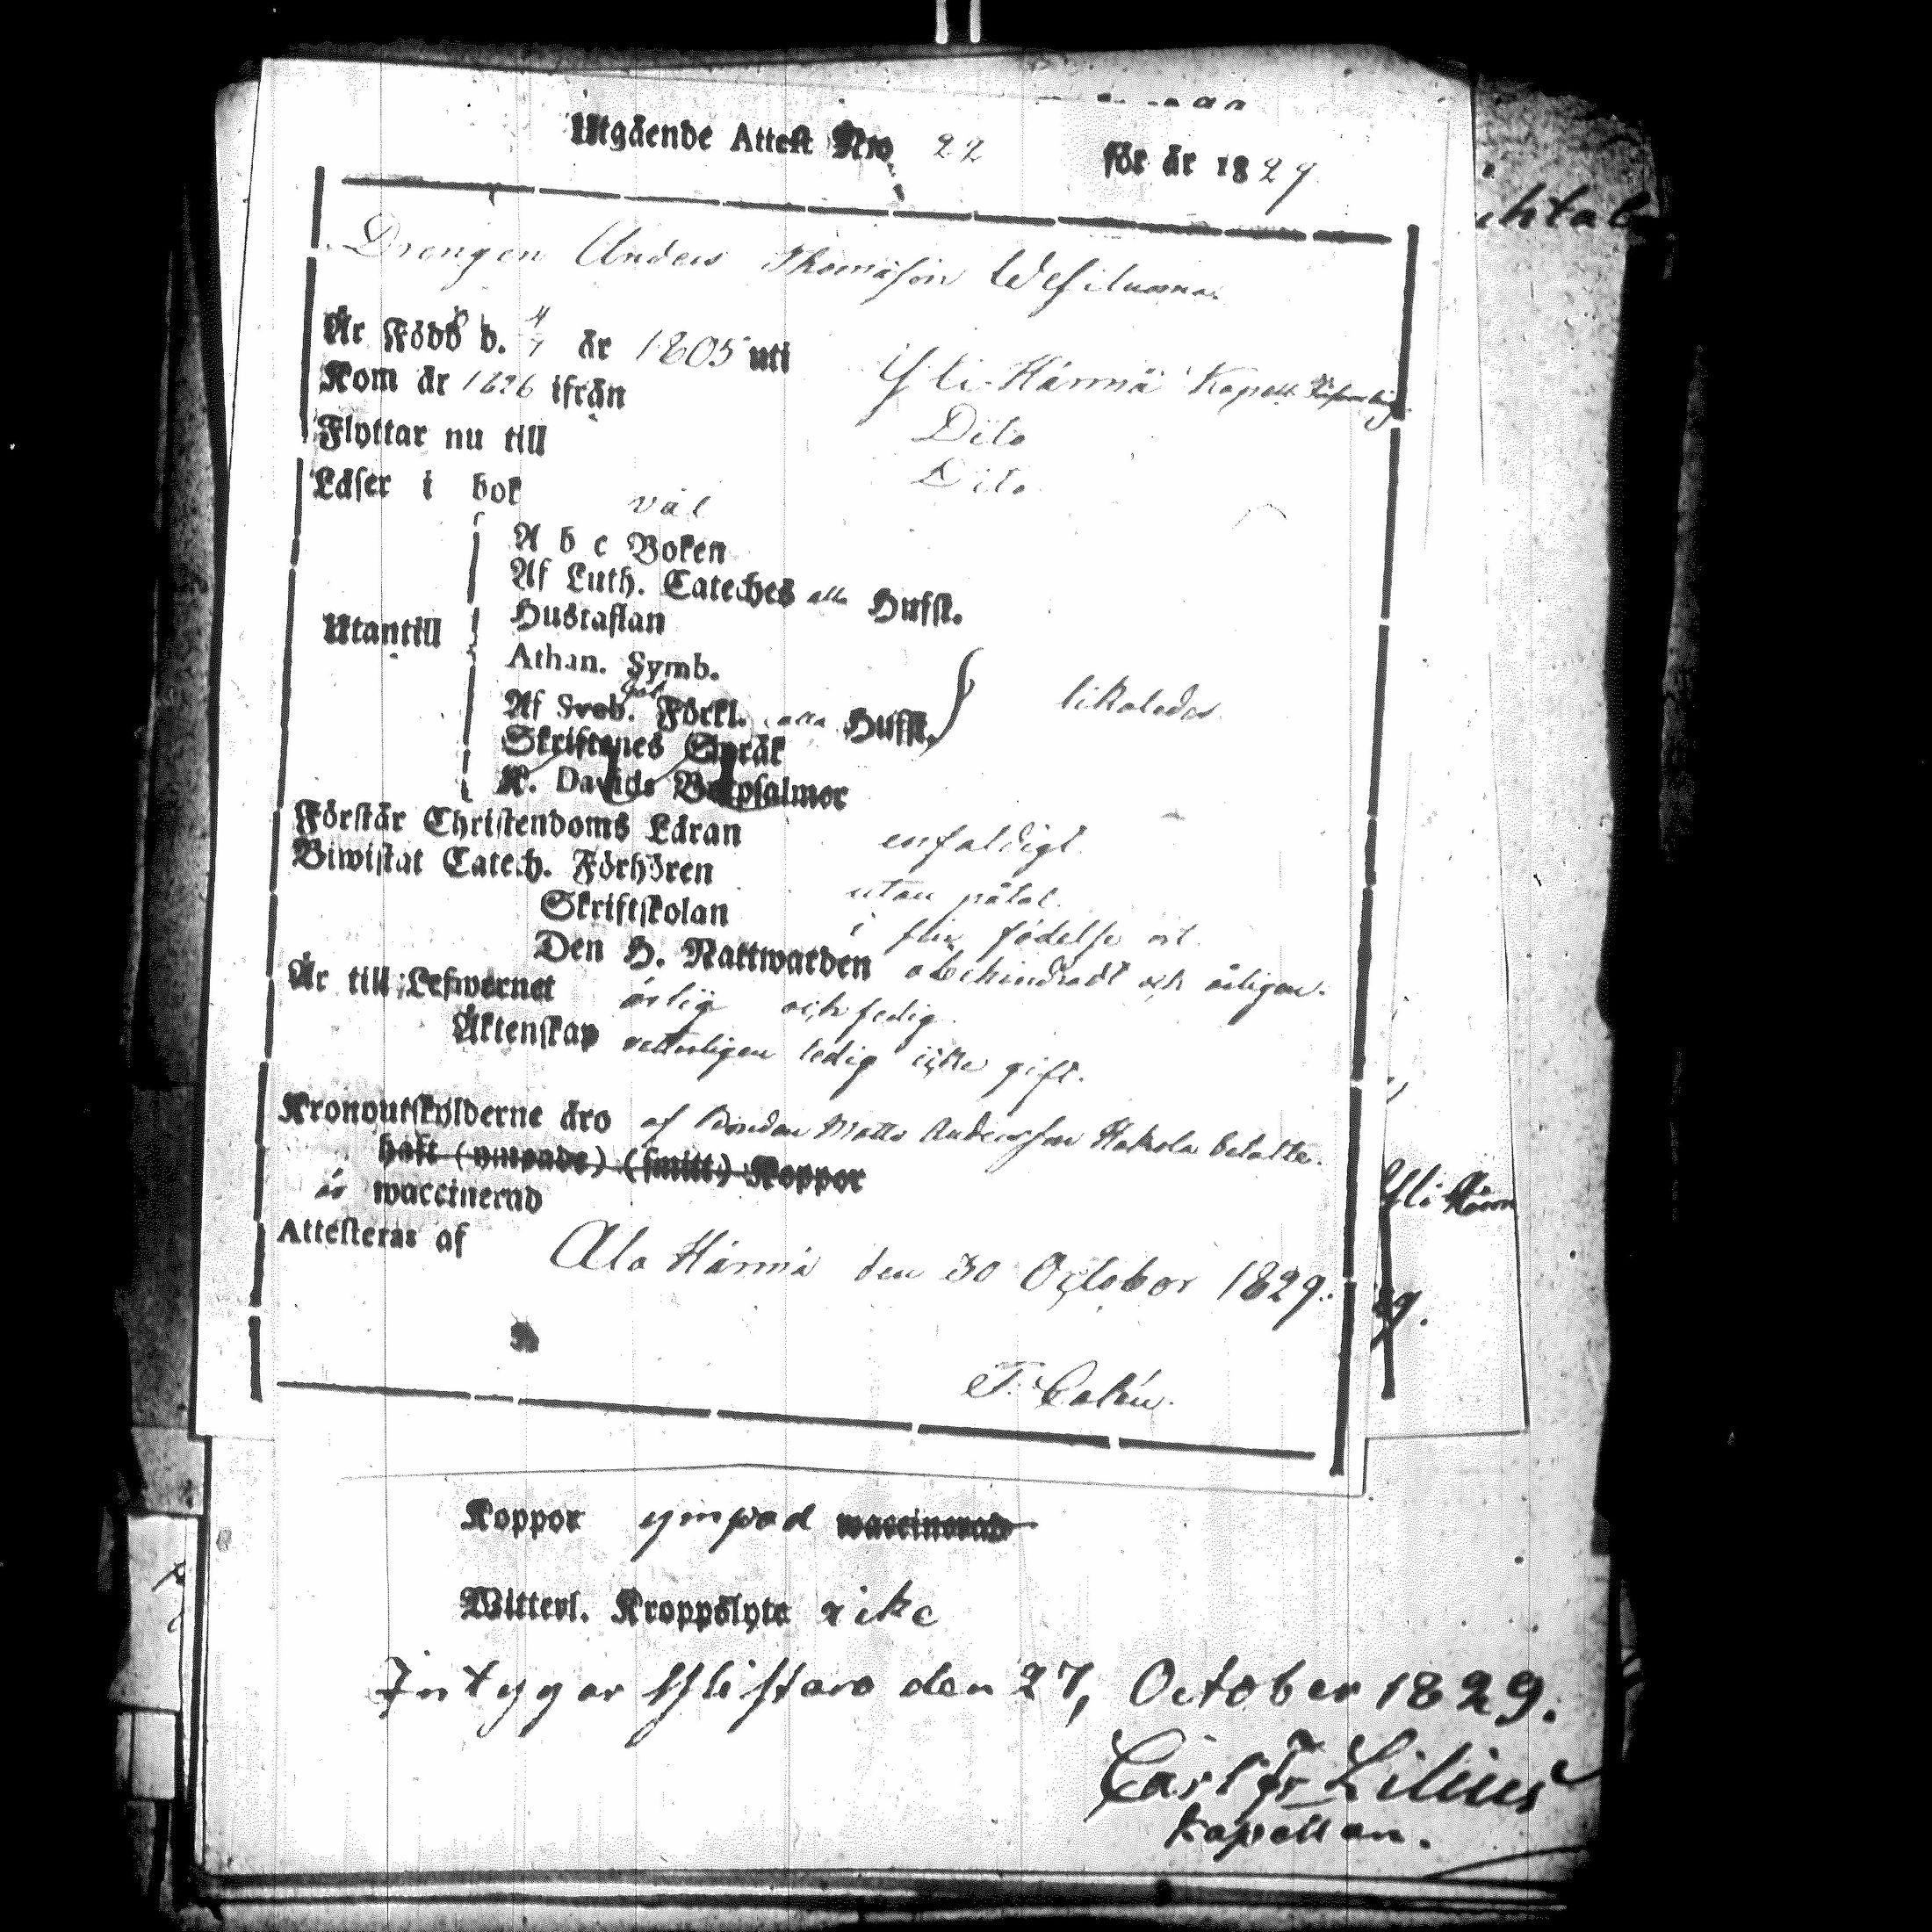 Utgående Attest Nro 22 för år 1829
Drengen Anders Thomasson Wesiluoma
Är Född d. 4/7 år 1805 uti Ylihärmä Kapell
Kom år 1826 ifrån Dito
Flyttar nu till Dito
Läser i bok väl
A b c Boken
Af Luth. Cateches alla Hufst.
Hustaflan
Utantill
Athan. Symb.
Af Sveb. Förkl. alla Hufst. likaledes
Skriftenes Språk
K. Davids Botpsalmer
Förstår Christendoms Läran enfaldigt
Biwistat Catech. Förhören utan påtal.
Skriftskolan i sin födelse ort.
Den H. Nattwarden obehindradt och årligen.
Är till Lefwernet ärlig och sedig
Äktenskap vetterligen ledig icke gift.
Kronoutskylderne äro af Bonden Matts Andersson Hakola betalte.
haft (ympade) (smitt) Koppor
är waccinerad
Attesteras af Ala Härmä den 30 October 1829.
Yli Härm
29.
Koppor ympad waccinerad
Witterl. Kroppslyte icke
Intygar Ylistaro den 27, October 1829.
Carl Fr Lilius
Kapellan.